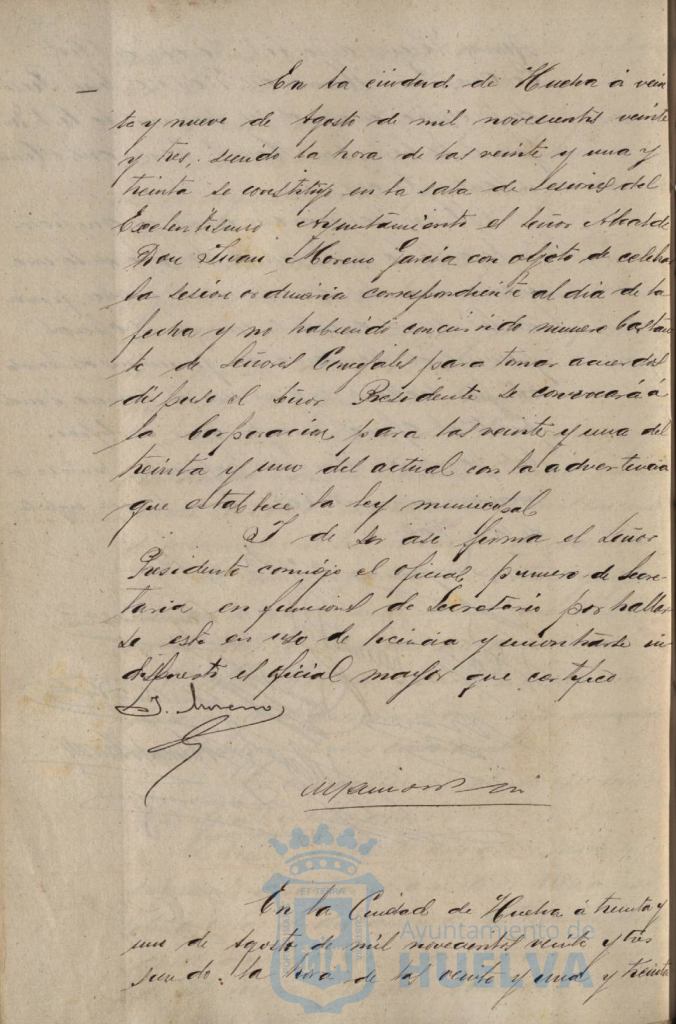 En la ciudad de Huelva á vein
te y nueve de Agosto de mil novecientos veinte
y tres, siendo la hora de las veinte y una y
treinta se constituyó en la sala de Sesiones del
Excelentísimo Ayuntamiento el Señor Alcalde
Don Juan Moreno García con objeto de celebrar
la sesión ordinaria correspondiente al dia de la
fecha y no habiendo concurrido numero bastan
te de Señores Concejales para tomar acuerdos
dispuso el Señor Presidente se convocará á
la Corporación para las veinte y una del
treinta y uno del actual con la advertencia
que establece la ley municipal
Y de ser asi firma el Señor
Presidente conmigo el oficial primero de Secre
taria en funciones de Secretario por hallar
se este en uso de licencia y encontrarse in
dispuesto el oficial mayor que certifico
J. Moreno
En la Ciudad de Huelva á treinta y
uno de Agosto de mil novecientos veinte y tres
siendo la hora de las veinte y una y treinta
Ayuntamiento de
HUELVA